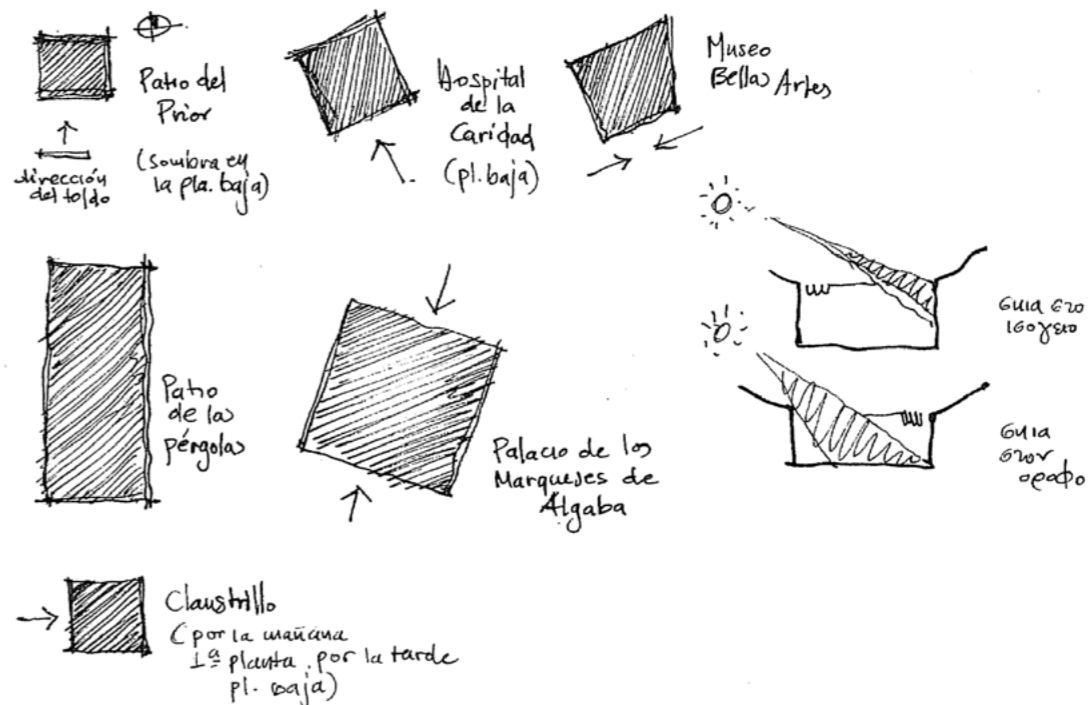 Patio del
Prior
(sombra en
la pla. baja)
dirección
del toldo
Hospital
de la
Caridad
(pl. baja)
Museo
Bellas Artes
Patio
de las
pérgolas
Palacio de los
Marqueses de
Algaba
σκιά στο
ισόγειο
σκιά
στον
όροφο
Claustrillo
(por la mañana
1ª planta, por la tarde
pl. baja)